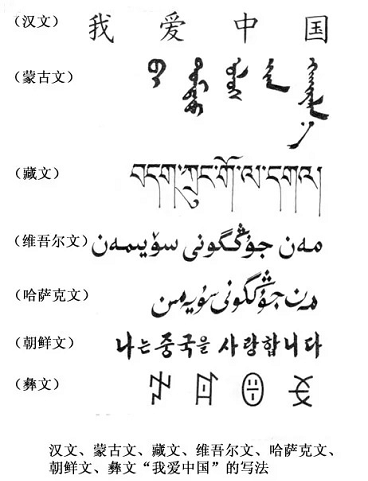 (汉文) 我 爱 中 国
(蒙古文)
(藏文) བདག་ཀྲུང་གོ་ལ་དགའ།
(维吾尔文) مەن جۇڭگونى سۆيىمەن
(哈萨克文) مەن جۇڭگونى سۇيەمىن
(朝鲜文) 나는 중국을 사랑합니다
(彝文)
汉文、蒙古文、藏文、维吾尔文、哈萨克文、
朝鲜文、彝文“我爱中国”的写法